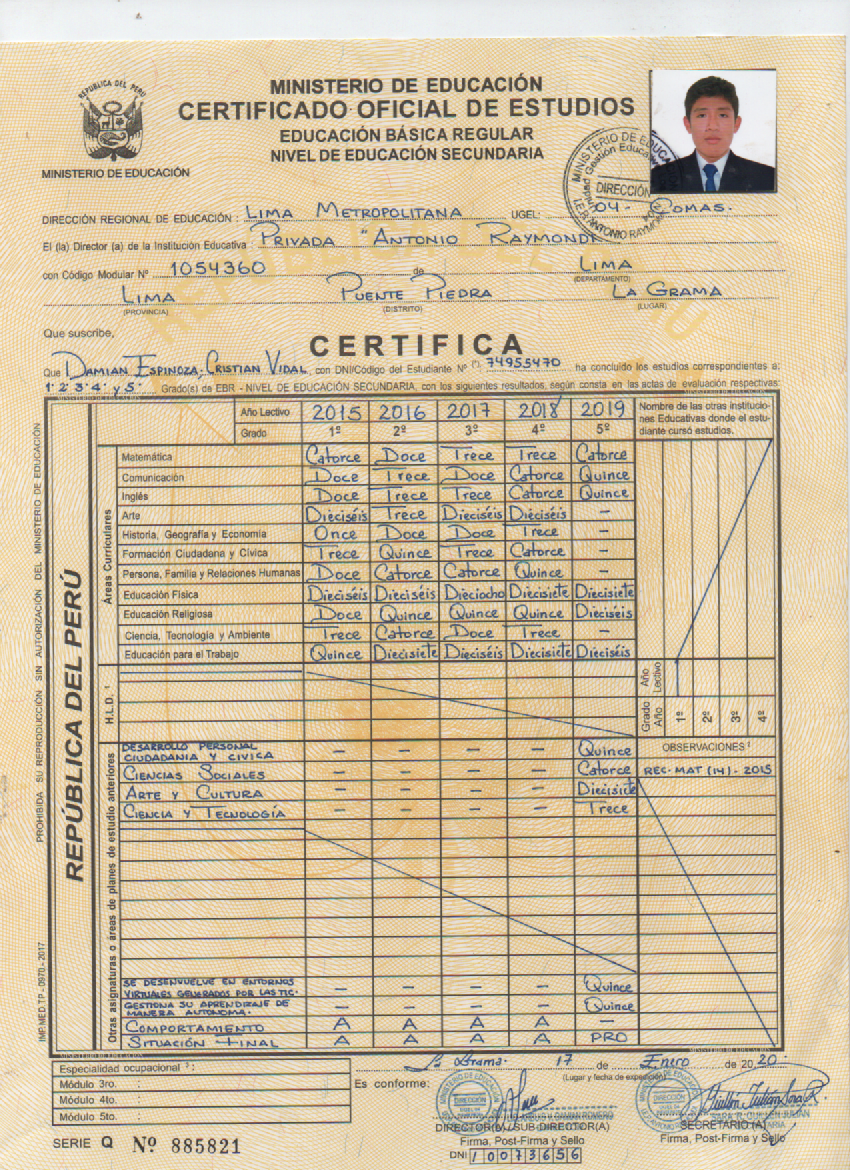 REPÚBLICA DEL PERÚ
MINISTERIO DE EDUCACIÓN
MINISTERIO DE EDUCACIÓN
CERTIFICADO OFICIAL DE ESTUDIOS
EDUCACIÓN BÁSICA REGULAR
NIVEL DE EDUCACIÓN SECUNDARIA
DIRECCIÓN REGIONAL DE EDUCACIÓN : LIMA METROPOLITANA UGEL: 04 - COMAS.
El (la) Director (a) de la Institución Educativa : PRIVADA "ANTONIO RAYMONDI
con Código Modular Nº 1054360 de LIMA
(DEPARTAMENTO)
LIMA PUENTE PIEDRA LA GRAMA
(PROVINCIA) (DISTRITO) (LUGAR)
Que suscribe,
CERTIFICA
Que DAMIAN ESPINOZA, CRISTIAN VIDAL, con DNI/Código del Estudiante Nº (*) 74955470 ha concluido los estudios correspondientes a:
1° 2° 3° 4° y 5° Grado(s) de EBR - NIVEL DE EDUCACIÓN SECUNDARIA, con los siguientes resultados, según consta en las actas de evaluación respectivas:
Año Lectivo 2015 2016 2017 2018 2019 Nombre de las otras instituciones Educativas donde el estudiante cursó estudios.
Grado 1º 2º 3º 4º 5º
Áreas Curriculares
Matemática Catorce Doce Trece Trece Catorce
Comunicación Doce Trece Doce Catorce Quince
Inglés Doce Trece Trece Catorce Quince
Arte Dieciséis Trece Dieciséis Dieciséis -
Historia, Geografía y Economía Once Doce Doce Trece -
Formación Ciudadana y Cívica Trece Quince Trece Catorce -
Persona, Familia y Relaciones Humanas Doce Catorce Catorce Quince -
Educación Física Dieciséis Dieciséis Dieciocho Diecisiete Diecisiete
Educación Religiosa Doce Quince Quince Quince Dieciséis
Ciencia, Tecnología y Ambiente Trece Catorce Doce Trece -
Educación para el Trabajo Quince Diecisiete Dieciséis Diecisiete Dieciséis
H.L.D. ¹
Año Lectivo
Grado Año 1º 2º 3º 4º
OBSERVACIONES ²
Otras asignaturas o áreas de planes de estudio anteriores
DESARROLLO PERSONAL CIUDADANIA Y CIVICA - - - - Quince
CIENCIAS SOCIALES - - - - Catorce REC. MAT (14) - 2015
ARTE Y CULTURA - - - - Diecisiete
CIENCIA Y TECNOLOGÍA - - - - Trece
SE DESENVUELVE EN ENTORNOS VIRTUALES GENERADOS POR LAS TIC. - - - - Quince
GESTIONA SU APRENDIZAJE DE MANERA AUTONOMA. - - - - Quince
COMPORTAMIENTO A A A A -
SITUACIÓN FINAL A A A A PRO
REPÚBLICA DEL PERÚ
PROHIBIDA SU REPRODUCCIÓN SIN AUTORIZACIÓN DEL MINISTERIO DE EDUCACIÓN
IMP.MED.TP - 0970 - 2017
Especialidad ocupacional ³ :
Módulo 3ro.
Módulo 4to.
Módulo 5to.
La Grama. 17 de Enero de 20 20.
(Lugar y fecha de expedición)
Es conforme:
DIRECTOR(A) / SUB-DIRECTOR(A)
Firma, Post-Firma y Sello
DNI 10073656
SECRETARIO (A)
Firma, Post-Firma y Sello
SERIE Q Nº 885821